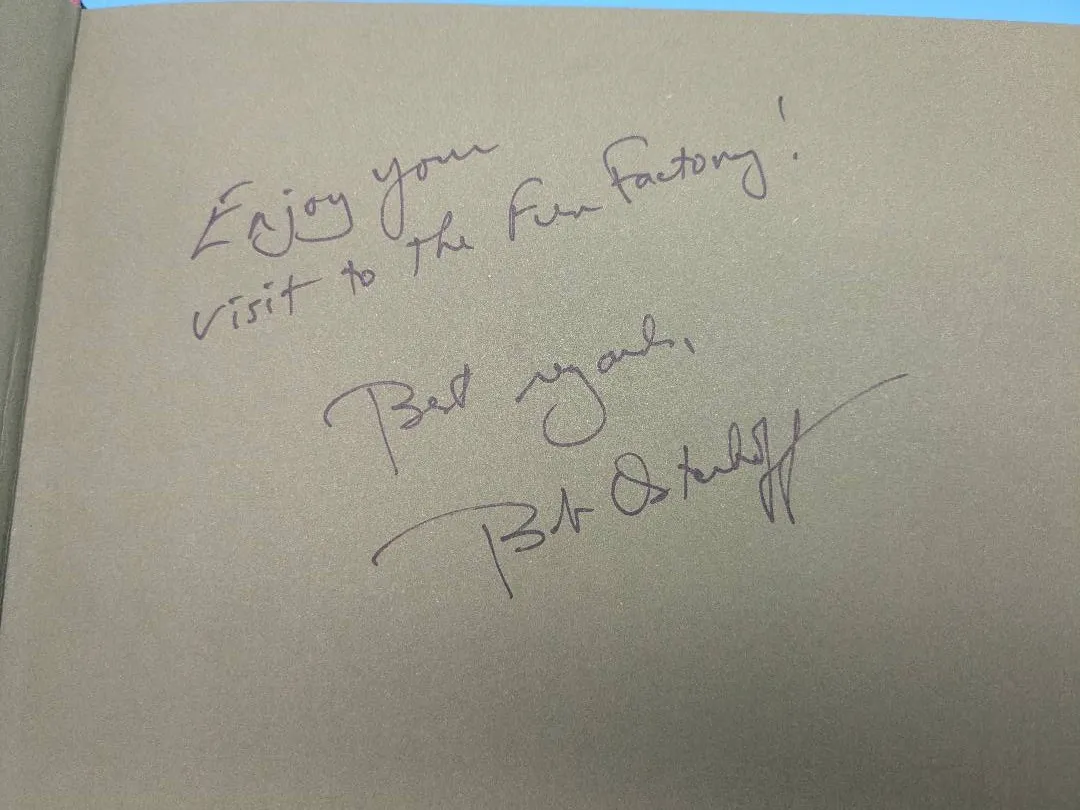 Enjoy your
visit to the Fun Factory!
Best regards,
Bob Osterhoff